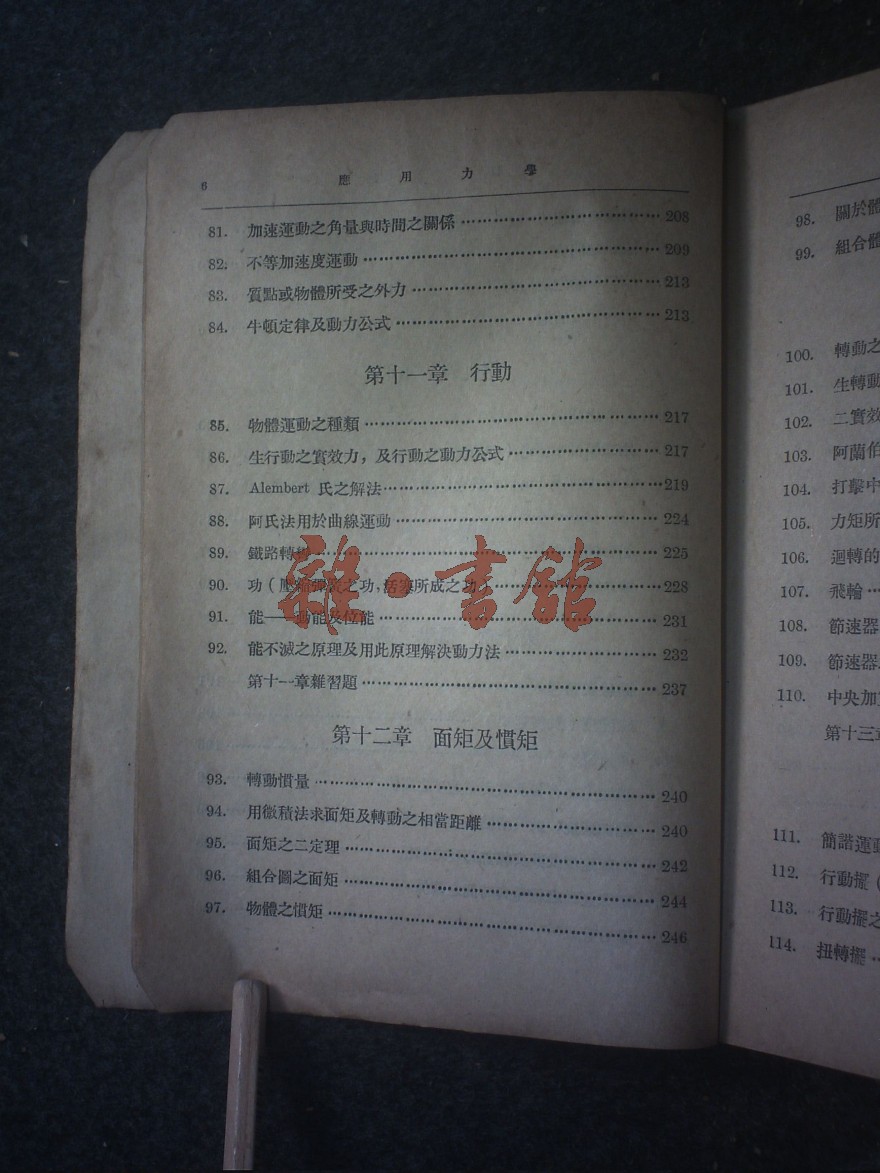 6 應用力學
81. 加速運動之角量與時間之關係 208
82. 不等加速度運動 209
83. 質點或物體所受之外力 213
84. 牛頓定律及動力公式 213
第十一章 行動
85. 物體運動之種類 217
86. 生行動之實效力，及行動之動力公式 217
87. Alembert 氏之解法 219
88. 阿氏法用於曲線運動 224
89. 鐵路轉 225
90. 功（壓縮彈簧之功，活塞所成之功 228
91. 能——動能及位能 231
92. 能不滅之原理及用此原理解決動力法 232
第十一章雜習題 237
第十二章 面矩及慣矩
93. 轉動慣量 240
94. 用微積法求面矩及轉動之相當距離 240
95. 面矩之二定理 242
96. 組合圖之面矩 244
97. 物體之慣矩 246
雜·書館
98. 關於體
99. 組合體
100. 轉動之
101. 生轉動
102. 二實效
103. 阿蘭伯
104. 打擊中
105. 力矩所
106. 迴轉的
107. 飛輪
108. 節速器
109. 節速器
110. 中央加
第十三章
111. 簡諧運動
112. 行動擺（
113. 行動擺之
114. 扭轉擺